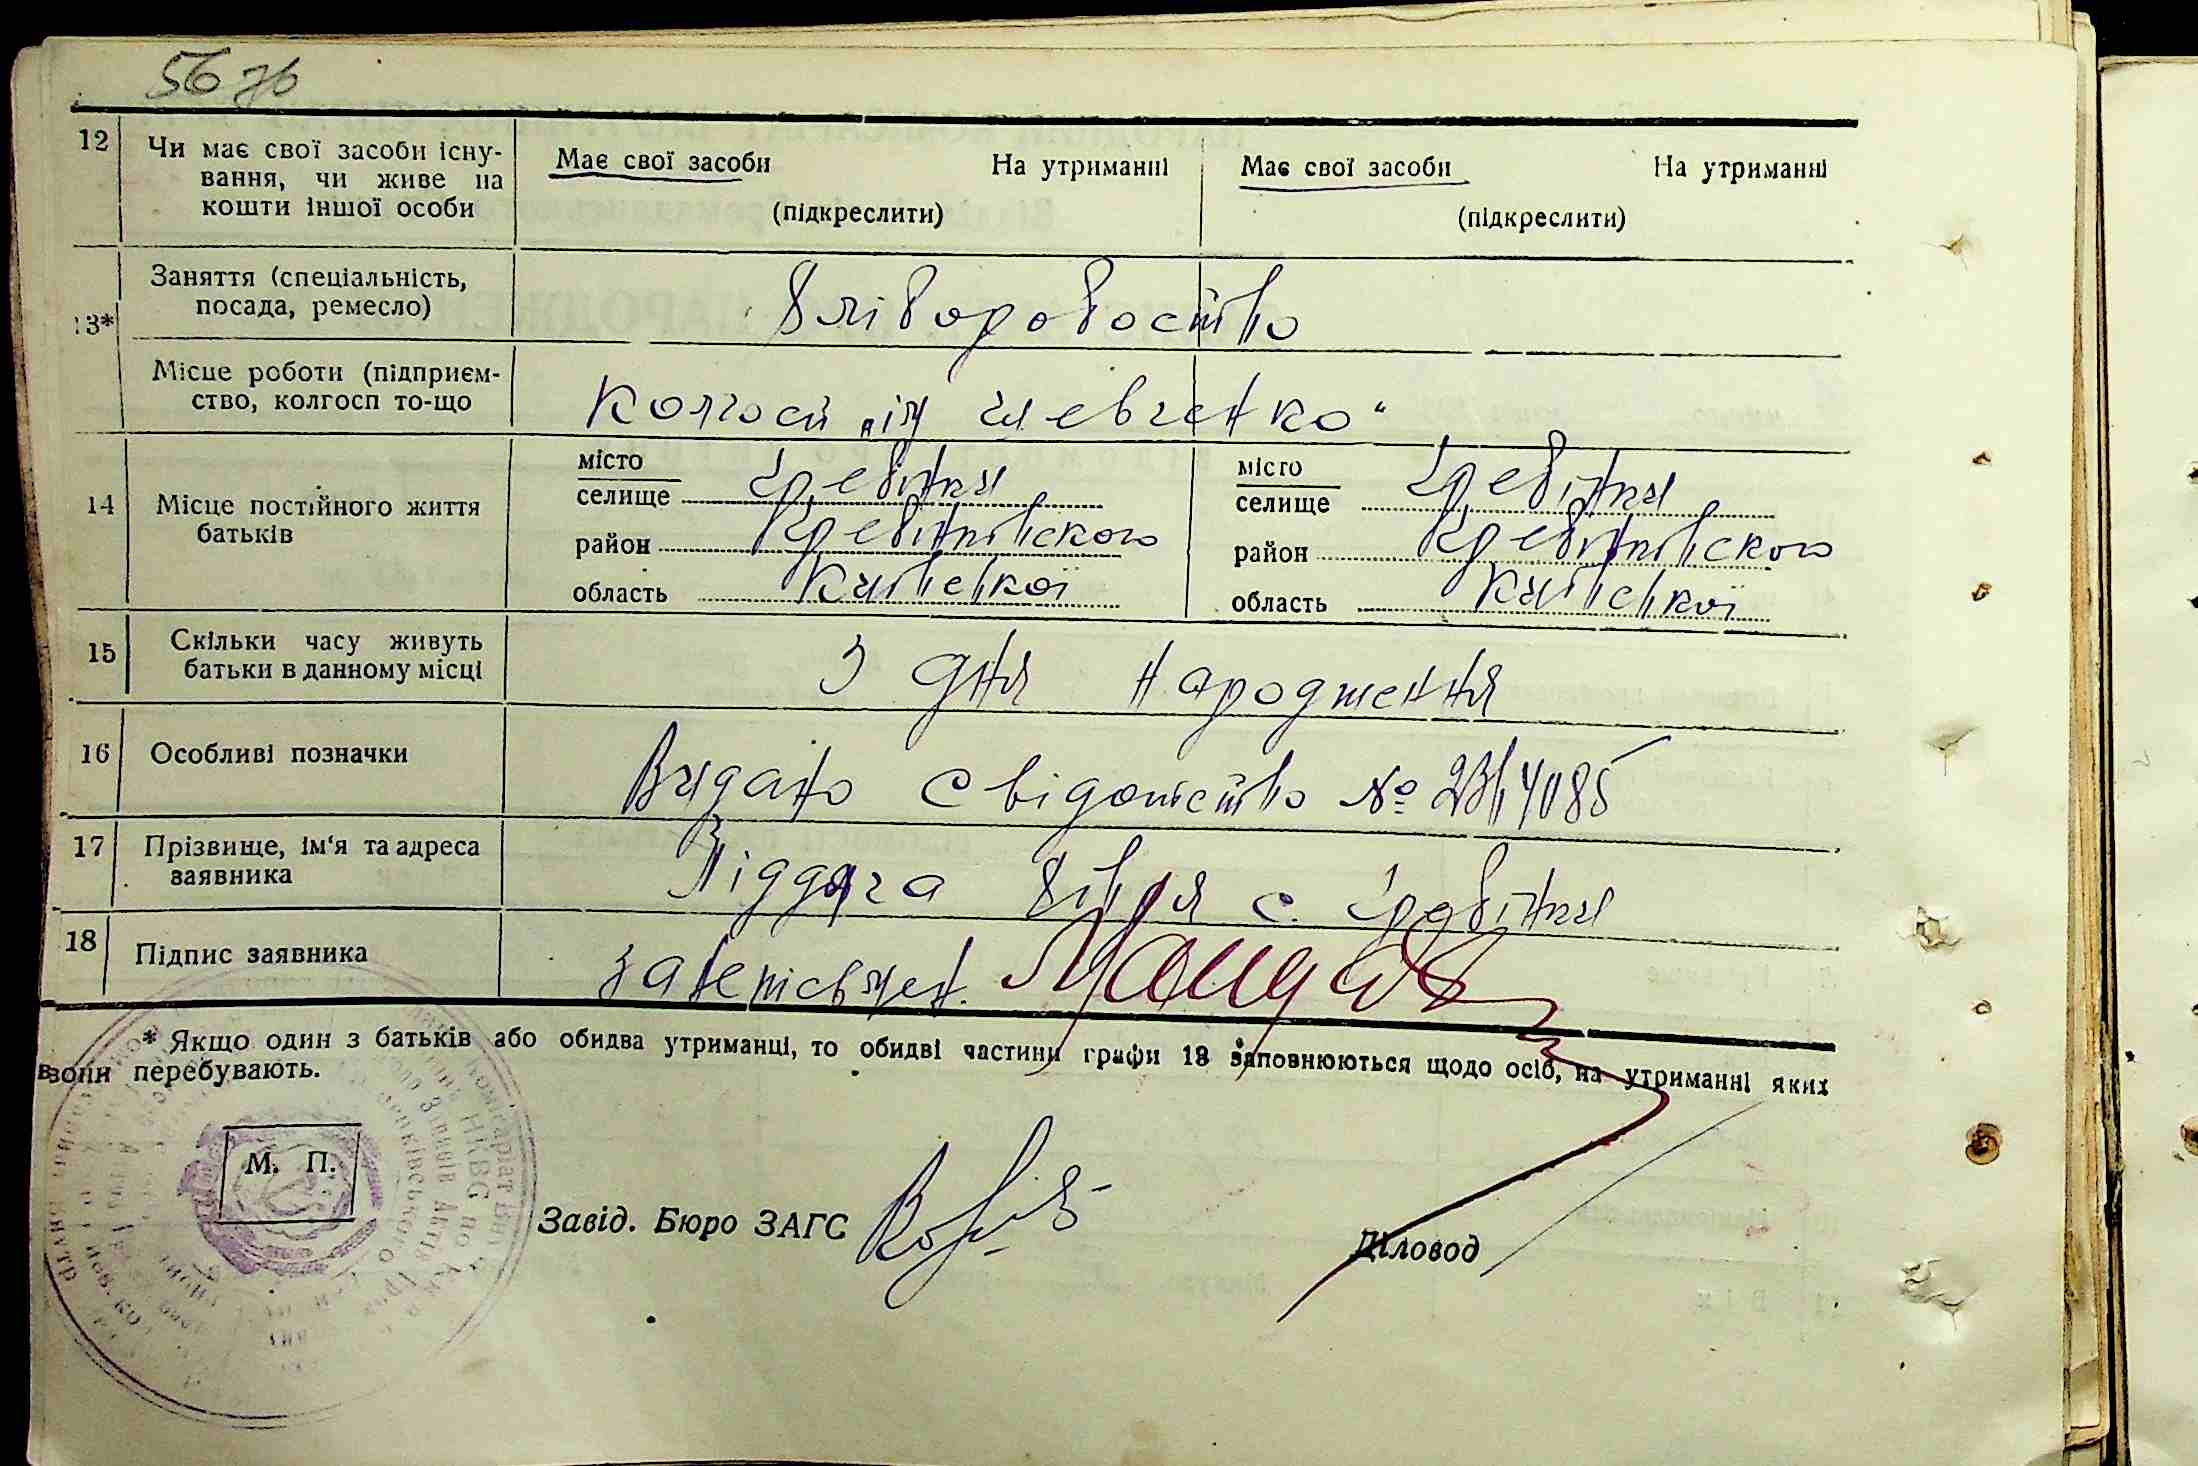 56 зв
12 Чи має свої засоби існу-
вання, чи живе на
кошти іншої особи
Має свої засоби На утриманні
(підкреслити)
Має свої засоби На утриманні
(підкреслити)
13* Заняття (спеціальність,
посада, ремесло)
Хліборобоство
Місце роботи (підприєм-
ство, колгосп то-що
Колгосп „ім Шевченко“
14 Місце постійного життя
батьків
місто
селище Гребінки
район Гребінківского
область Київської
місто
селище Гребінки
район Гребінківского
область Київської
15 Скільки часу живуть
батьки в данному місці
З дня народження
16 Особливі позначки
Видано свідотство №
17 Прізвище, ім‘я та адреса
заявника
Піддяча с. Гребінки
18 Підпис заявника
* Якщо один з батьків або обидва утриманці, то обидві частини графи 13 заповнюються щодо осіб, на утриманні яких
вони перебувають.
М. П.
Завід. Бюро ЗАГС
Діловод